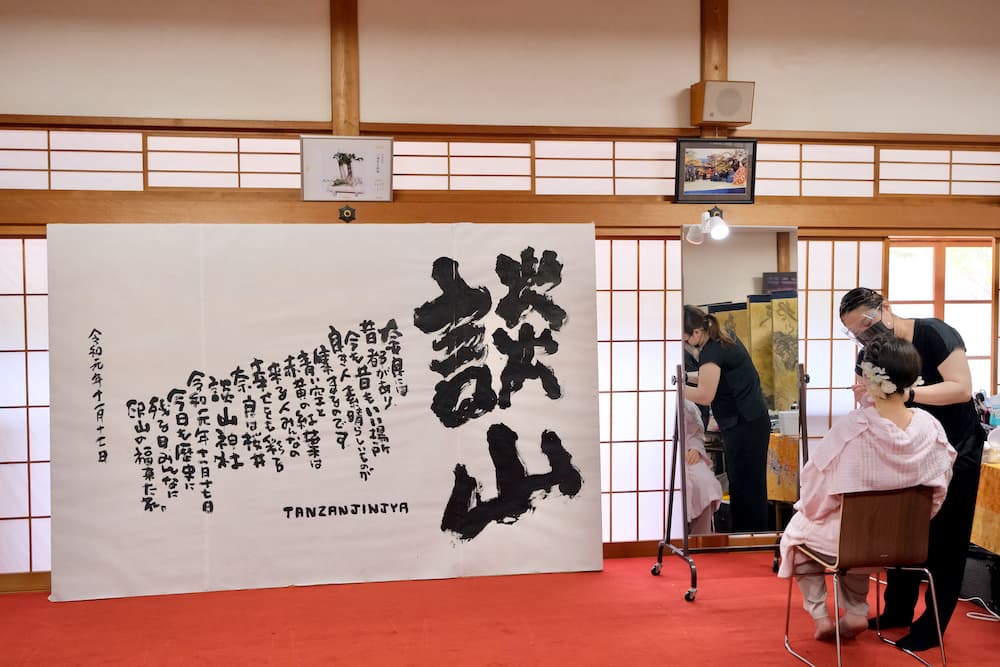 談山
奈良には
昔都があり
今も昔もいい場所
良き人素晴らしいものが
集まるものです
青い空と
赤黄の紅葉は
来る人みんなの
幸せをも彩る
奈良は桜井
談山神社
令和元年十一月十七日
今日を歴史に
残る日みんなに
山の福来たる。
TANZANJINJYA
令和元年十一月十七日